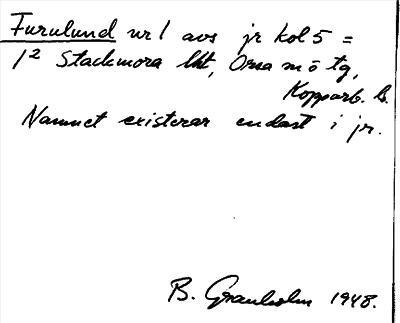 Furulund nr 1 avs jr kol 5 =
1² Stackmora lht, Orsa m o tg,
Kopparb. l.
Namnet existerar endast i jr.
B. Granholm 1948.